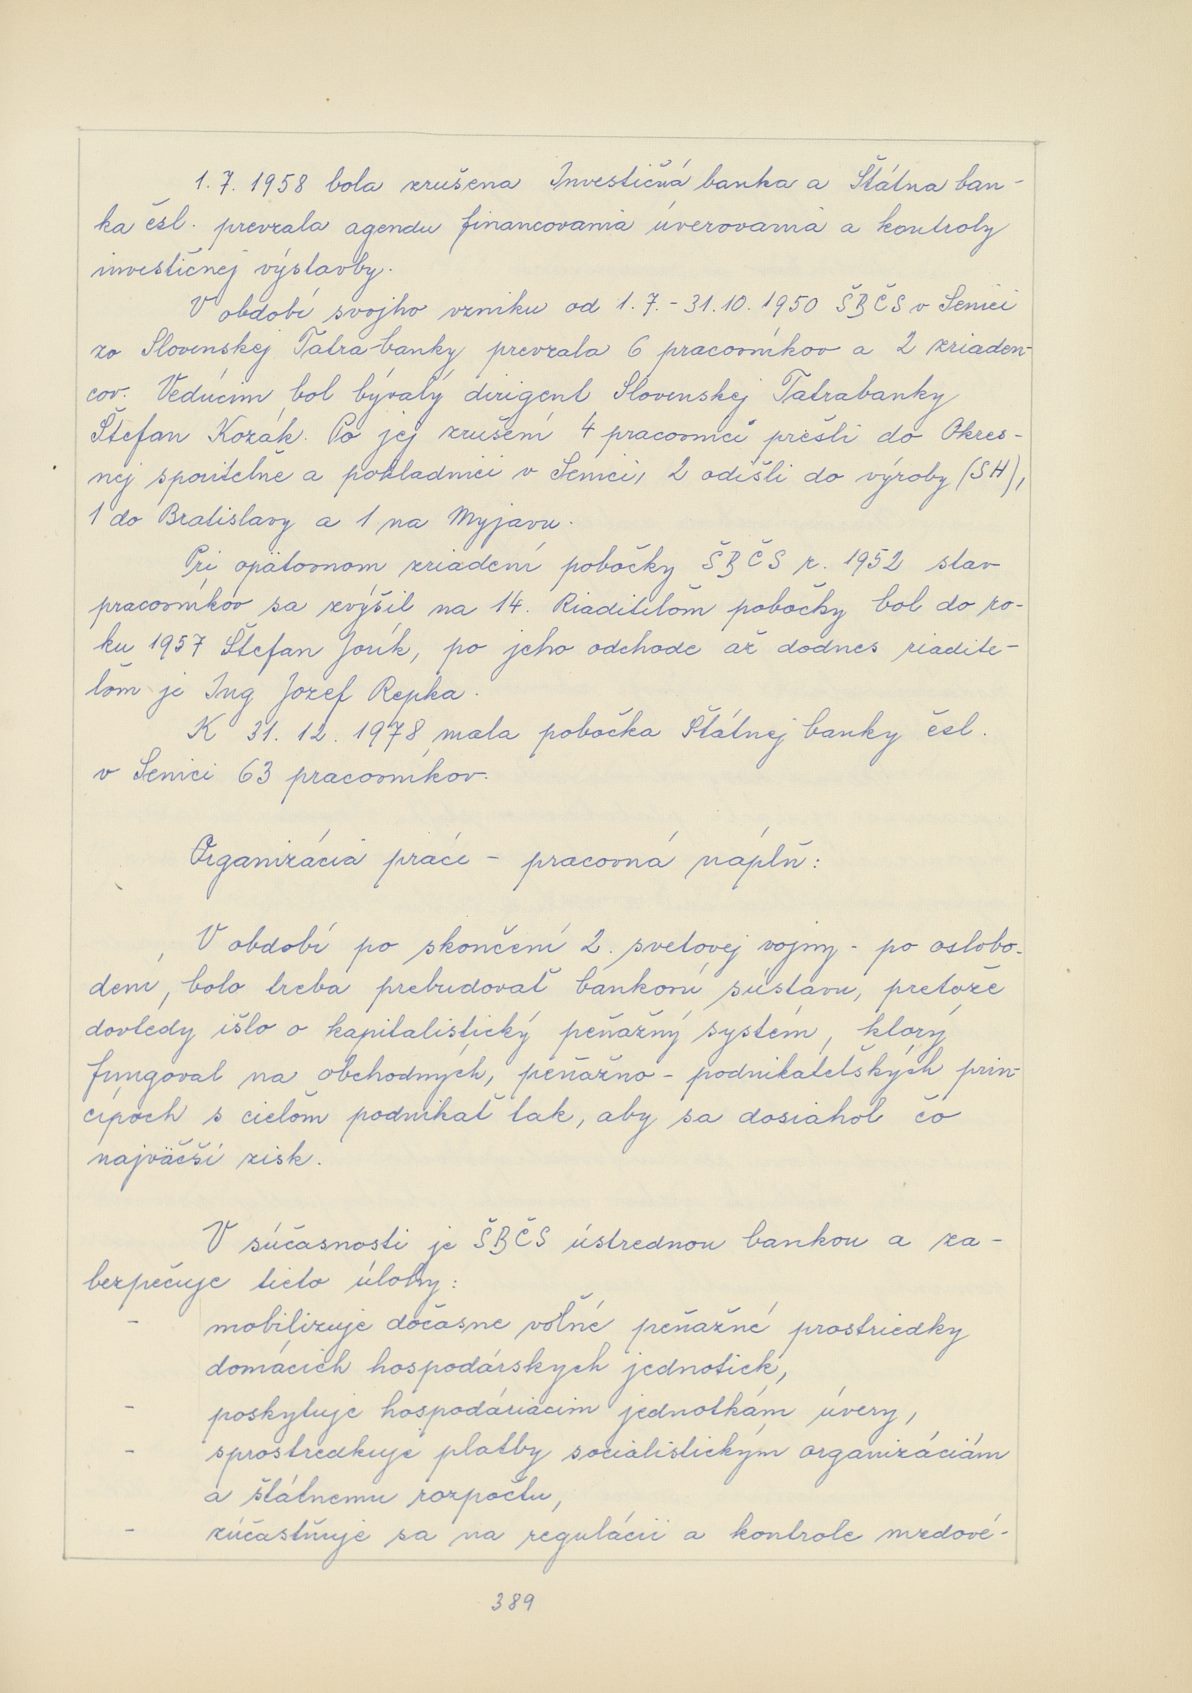 1. 7. 1958 bola zrušena Investičná banka a Štátna ban-
ka čsl. prevzala agendu financovania úverovania a kontroly
investičnej výstavby.
V období svojho vzniku od 1. 7. - 31. 10. 1950 ŠBČS v Senici
zo Slovenskej Tatra-banky prevzala 6 pracovníkov a 2 zriaden-
cov. Vedúcim bol bývalý dirigent Slovenskej Tatrabanky
Štefan Kozák. Po jej zrušení 4 pracovníci prešli do Okres-
nej sporiteľne a pokladnici v Senici, 2 odišli do výroby (SH),
1 do Bratislavy a 1 na Myjavu.
Pri opätovnom zriadení pobočky ŠBČS r. 1952 stav
pracovníkov sa zvýšil na 14. Riaditeľom pobočky bol do ro-
ku 1957 Štefan Jorík, po jeho odchode až dodnes riadite-
ľom je Ing Jozef Repka.
K 31. 12. 1978 mala pobočka Štátnej banky čsl.
v Senici 63 pracovníkov.
Organizácia práce - pracovná náplň:
V období po skončení 2. svetovej vojny - po oslobo-
dení, bolo treba prebudovať bankovú sústavu, pretože
dovtedy išlo o kapitalistický peňažný systém, ktorý
fungoval na obchodných, peňažno - podnikateľských prin-
cípoch s cieľom podnikať tak, aby sa dosiahol čo
najväčší zisk.
V súčasnosti je ŠBČS ústrednou bankou a za-
bezpečuje tieto úlohy:
- mobilizuje dočasne voľné peňažné prostriedky
domácich hospodárskych jednotiek,
- poskytuje hospodáriacim jednotkám úvery,
- sprostredkuje platby socialistickým organizáciám
a štátnemu rozpočtu,
- zúčastňuje sa na regulácii a kontrole mzdové-
389